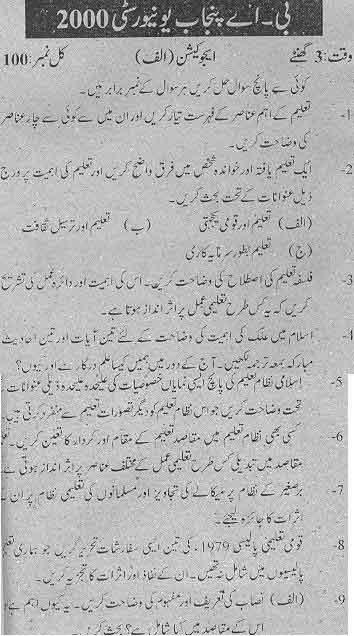 بی۔اے پنجاب یونیورسٹی 2000
وقت: 3 گھنٹے ایجوکیشن (الف) کل نمبر: 100
کوئی سے پانچ سوال حل کریں ہر سوال کے نمبر برابر ہیں۔
1- تعلیم کے اہم عناصر کے فہرست تیار کریں اور ان میں سے کوئی سے چار عناصر
کی وضاحت کریں۔
2- ایک تعلیم یافتہ اور خواندہ شخص میں فرق واضح کریں اور تعلیم کی اہمیت پر درج
ذیل عنوانات کے تحت بحث کریں۔
(الف) تعلیم اور قومی یکجہتی (ب) تعلیم اور ترسیل ثقافت
(ج) تعلیم بطور سرمایہ کاری
3- فلسفہ تعلیم کی اصطلاح کی وضاحت کریں۔ اس کی اہمیت اور دائرہ عمل کی تشریح
کریں کہ یہ کس طرح تعلیمی عمل پر اثر انداز ہوتا ہے۔
4- اسلام میں علم کی اہمیت کی وضاحت کے لئے تین آیات اور تین احادیث
مبارکہ بمعہ ترجمہ لکھیں۔ آج کے دور میں ہمیں کیسا علم درکار ہے اور کیوں؟
5- اسلامی نظام تعلیم کی پانچ ایسی نمایاں خصوصیات کی علیحدہ علیحدہ ذیلی عنوانات کے
تحت وضاحت کریں جو اس نظام تعلیم کو دیگر تصورات تعلیم سے منفرد کرتی ہیں۔
6- کسی بھی نظام تعلیم میں مقاصد تعلیم کے مقام اور کردار کا تعین کریں۔
مقاصد میں تبدیلی کس طرح تعلیمی عمل کے مختلف عناصر پر اثر انداز ہوتی ہے
7- برصغیر کے نظام پر میکالے کی تجاویز اور مسلمانوں کی تعلیمی نظام پر ان کے
اثرات کا جائزہ لیجئے۔
8- قومی تعلیمی پالیسی 1979ء کی تین ایسی سفارشات تحریر کریں جو ہماری تعلیمی
پالیسیوں میں شامل نہ تھیں۔ ان کے نفاذ اور اثرات کا تجزیہ کریں۔
9- (الف) نصاب کی تعریف اور مفہوم کی وضاحت کریں۔ یہ کیوں اہم ہے
اس کے مقاصد میں کیا شامل ہے؟ بحث کریں۔